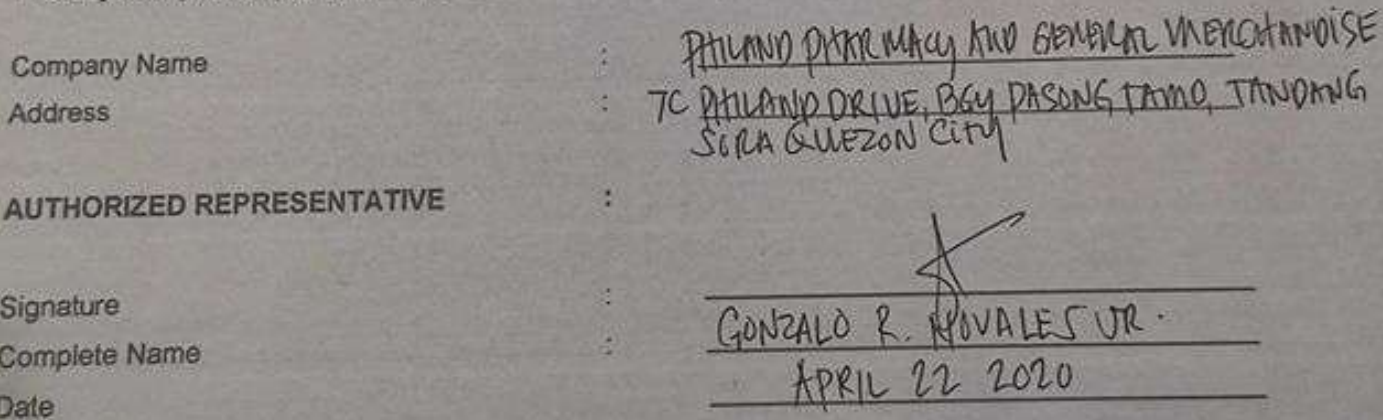 Company Name : PHILAND PHARMACY AND GENERAL MERCHANDISE
Address : 7C PHILAND DRIVE, BGY PASONG TAMO, TANDANG
SORA QUEZON CITY
AUTHORIZED REPRESENTATIVE :
Signature :
Complete Name : GONZALO R. JR.
Date APRIL 22 2020